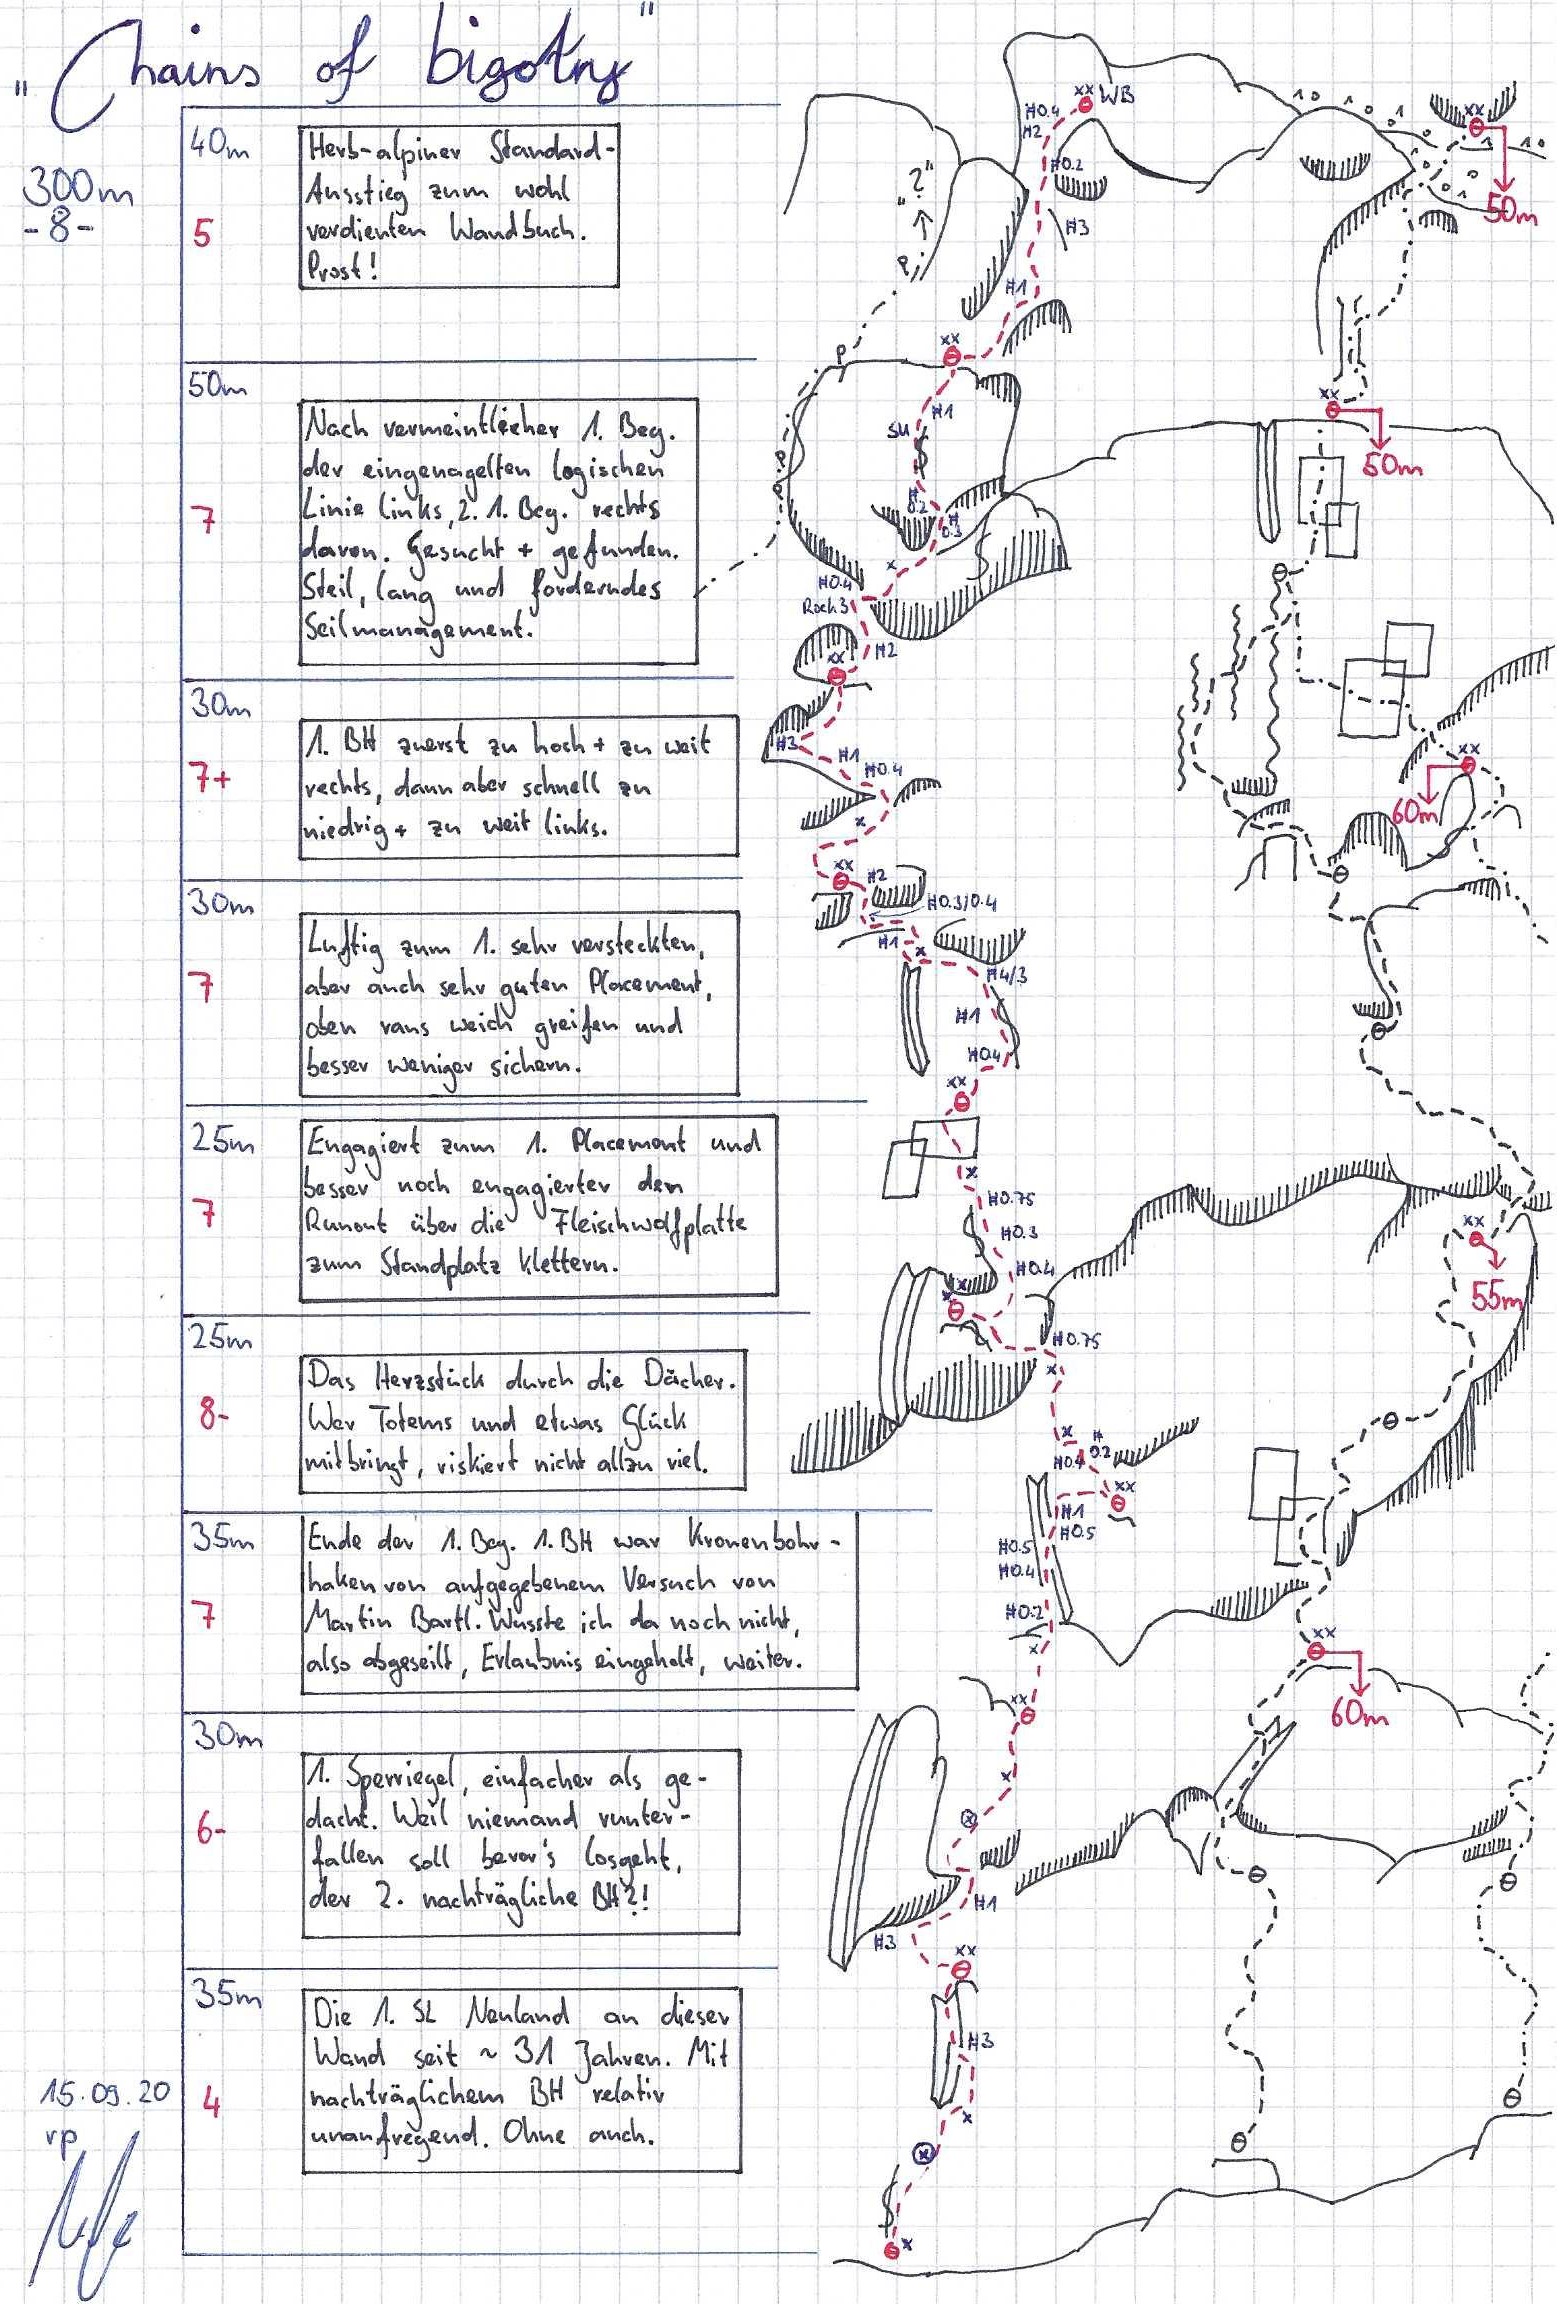 "Chains of bigotry"
300m
-8-
40m
5
Herb-alpiner Standard-
Ausstieg zum wohl
verdienten Wandbuch.
Prost!
50m
7
Nach vermeintlicher 1. Beg.
der eingenagelten logischen
Linie links, 2. 1. Beg. rechts
davon. Gesucht + gefunden.
Steil, lang und forderndes
Seilmanagement.
30m
7+
1. BH zuerst zu hoch + zu weit
rechts, dann aber schnell zu
niedrig + zu weit links.
30m
7
Luftig zum 1. sehr versteckten,
aber auch sehr guten Placement,
oben raus weich greifen und
besser weniger sichern.
25m
7
Engagiert zum 1. Placement und
besser noch engagierter den
Runout über die Fleischwolfplatte
zum Standplatz klettern.
25m
8-
Das Herzstück durch die Dächer.
Wer Totems und etwas Glück
mitbringt, riskiert nicht allzu viel.
35m
7
Ende der 1. Beg. 1. BH war Kronenbohr-
haken von aufgegebenem Versuch von
Martin Bartl. Wusste ich da noch nicht,
also abgeseilt, Erlaubnis eingeholt, weiter.
30m
6-
1. Sperriegel, einfacher als ge-
dacht. Weil niemand runter-
fallen soll bevor's losgeht,
der 2. nachträgliche BH?!
35m
4
Die 1. SL Neuland an dieser
Wand seit ~ 31 Jahren. Mit
nachträglichem BH relativ
unaufregend. Ohne auch.
15.09.20
rp
xx WB
H0.4
H2
H0.2
H3
H1
"?"
P
P
xx
H1
SU
P
P
H
0.2
H
0.3
x
H0.4
Rock3
H2
xx
H3
H1
H0.4
x
xx
H2
H0.3/0.4
H1
x
H4/3
H1
H0.4
xx
x
H0.75
H0.3
H0.4
x
x
H0.75
x
x
H
0.2
H0.4
xx
H1
H0.5
H0.5
H0.4
H0.2
x
xx
x
x
H1
H3
xx
H3
x
x
x
xx
50m
xx
50m
xx
60m
xx
55m
xx
60m